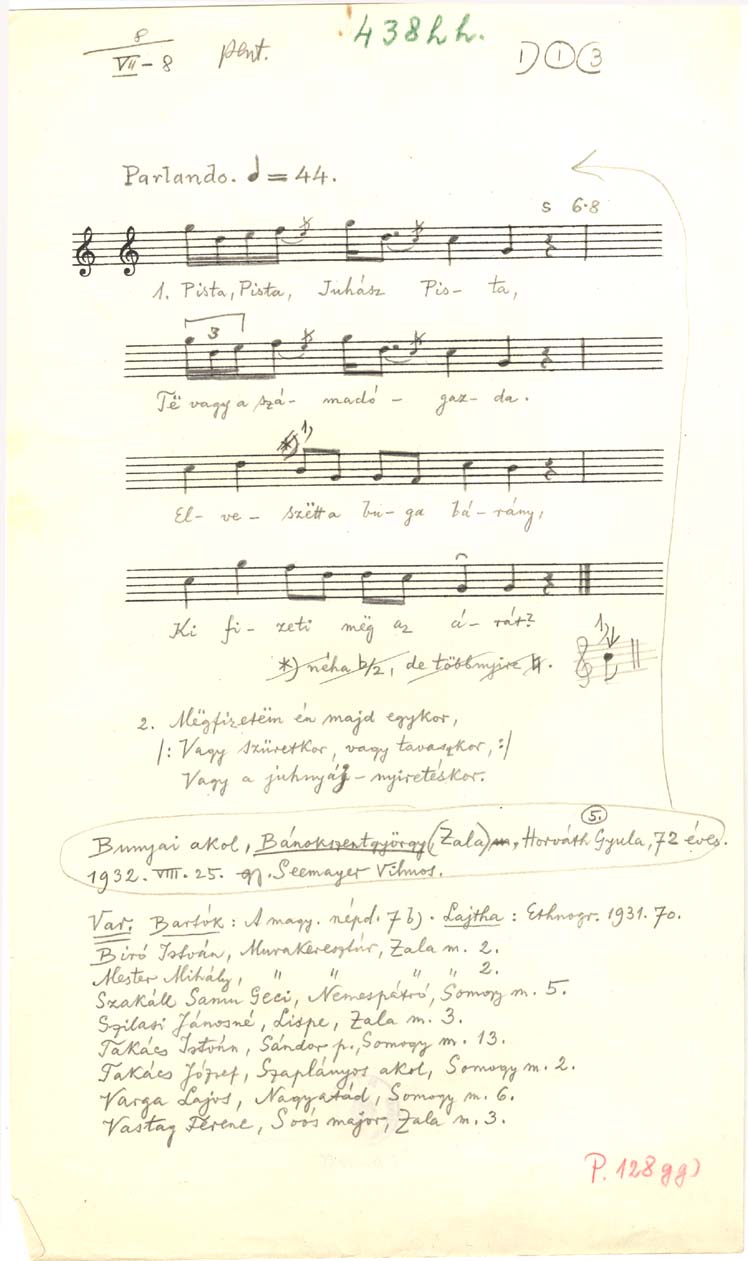 438hh.
8
VII-8 pent. 1) 1 3
Parlando. = 44.
s 6·8
1. Pista, Pista, Juhász Pis- ta,
3
Të vagy a szá- madó - gaz- da.
*) 1)
El- ve- szëtt a bu- ga bá- rány,
Ki fi- zeti még az á- rát?
*) néha b/2, de többnyire ♮.
1)
2. Mëgfizetëm én majd egykor,
/: Vagy szüretkor, vagy tavaszkor, :/
Vagy a juhnyáj-nyiretéskor.
5.
Bunyai akol, Bánokszentgyörgy (Zala) m, Horváth Gyula, 72 éves.
1932. VIII. 25. gy. Seemayer Vilmos.
Var. Bartók: A magy. népd. 7 b). Lajtha: Ethnogr. 1931. 70.
Biró István, Murakeresztúr, Zala m. 2.
Mester Mihály, " " " " 2.
Szakáll Samu Geci, Nemespátró, Somogy m. 5.
Szilasi Jánosné, Lispe, Zala m. 3.
Takács István, Sándor p., Somogy m. 13.
Takács József, Szaplányos akol, Somogy m. 2.
Varga Lajos, Nagyatád, Somogy m. 6.
Vastag Ferenc, Soós major, Zala m. 3.
P. 128gg)